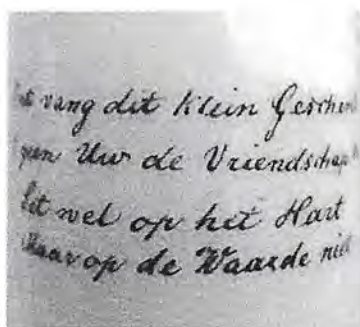 vang dit klein Geschen
Uw de Vriendschap
let wel op het Hart
Maar op de Waarde niet